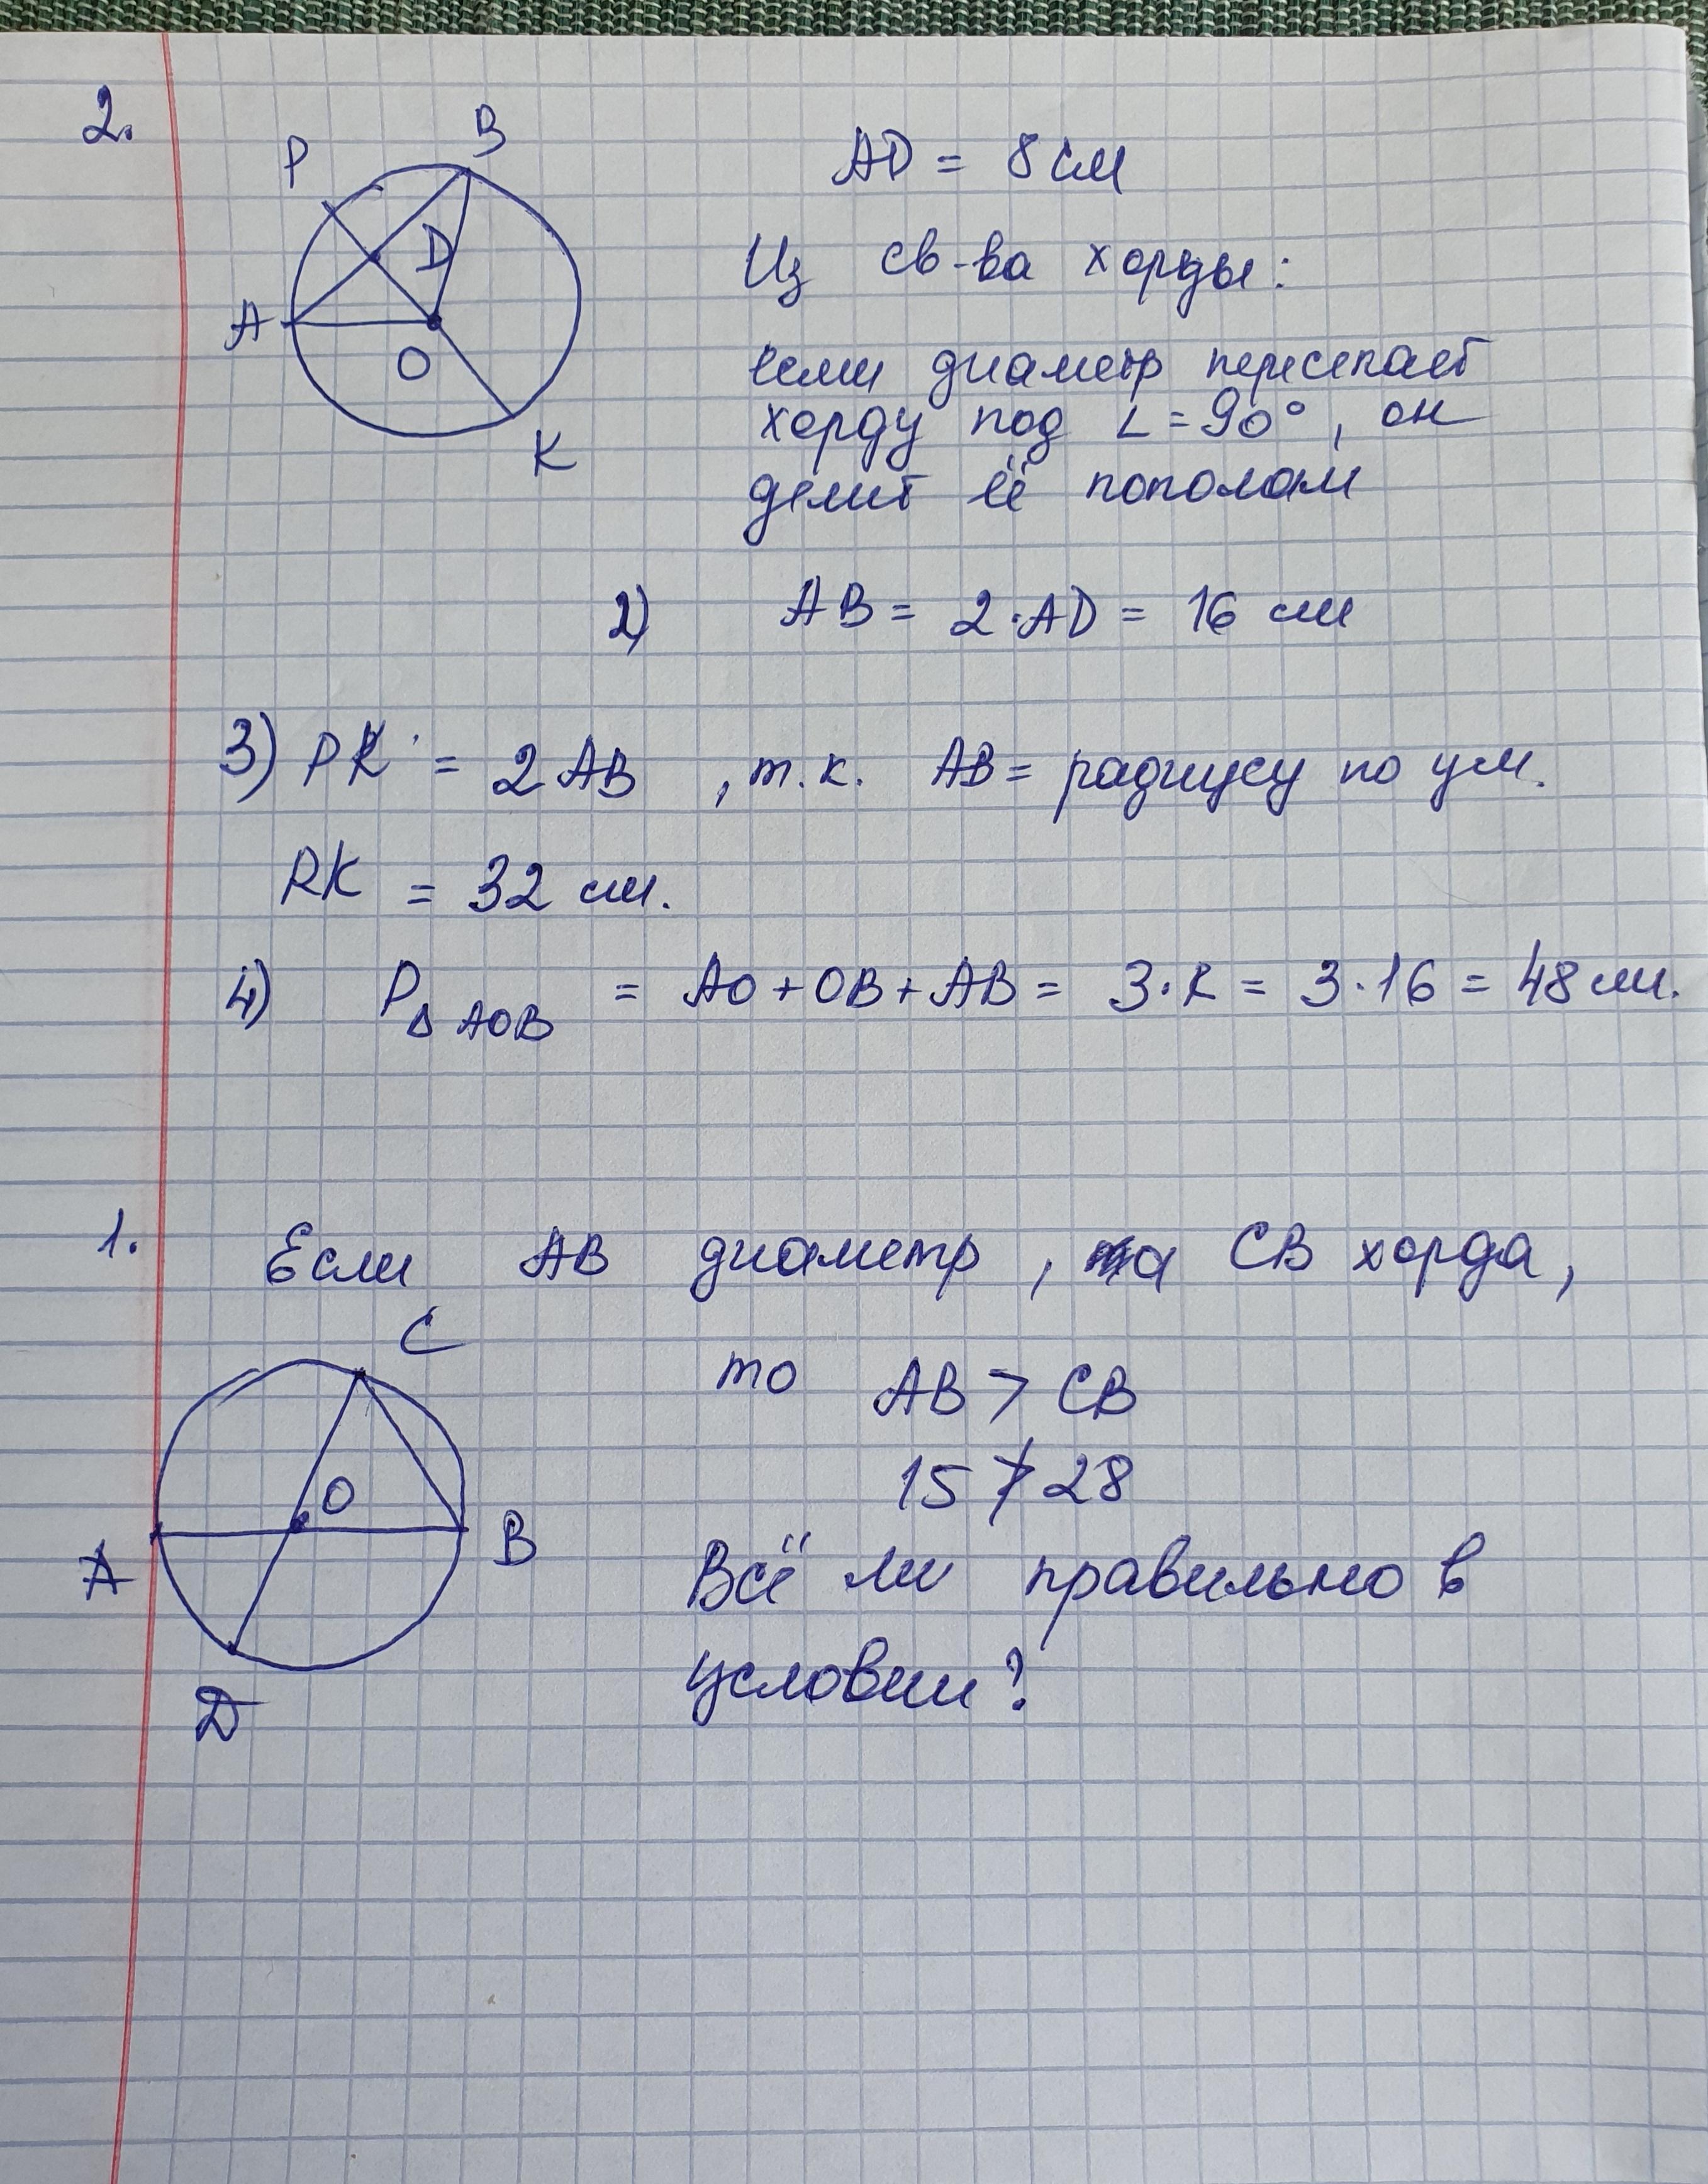 2.
P
B
D
A
O
K
AD = 8 см
Из св-ва хорды:
если диаметр пересекает
хорду под ∠=90°, он
делит её пополам
2) AB = 2·AD = 16 см
3) PK = 2AB , т.к. AB = радиусу по усл.
PK = 32 см.
4) P△AOB = AO+OB+AB = 3·R = 3·16 = 48 см.
1. Если AB диаметр, а CB хорда,
C
O
A
B
D
то AB > CB
15 ≯ 28
Всё ли правильно в
условии?